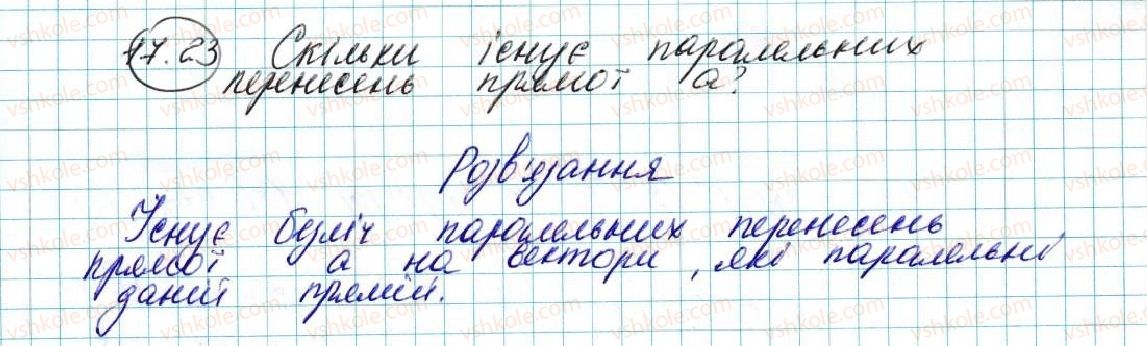 17.23 Скільки існує паралельних
перенесень прямої а?
Розв'язання
Існує безліч паралельних перенесень
прямої а на вектори, які паралельні
даній прямій.